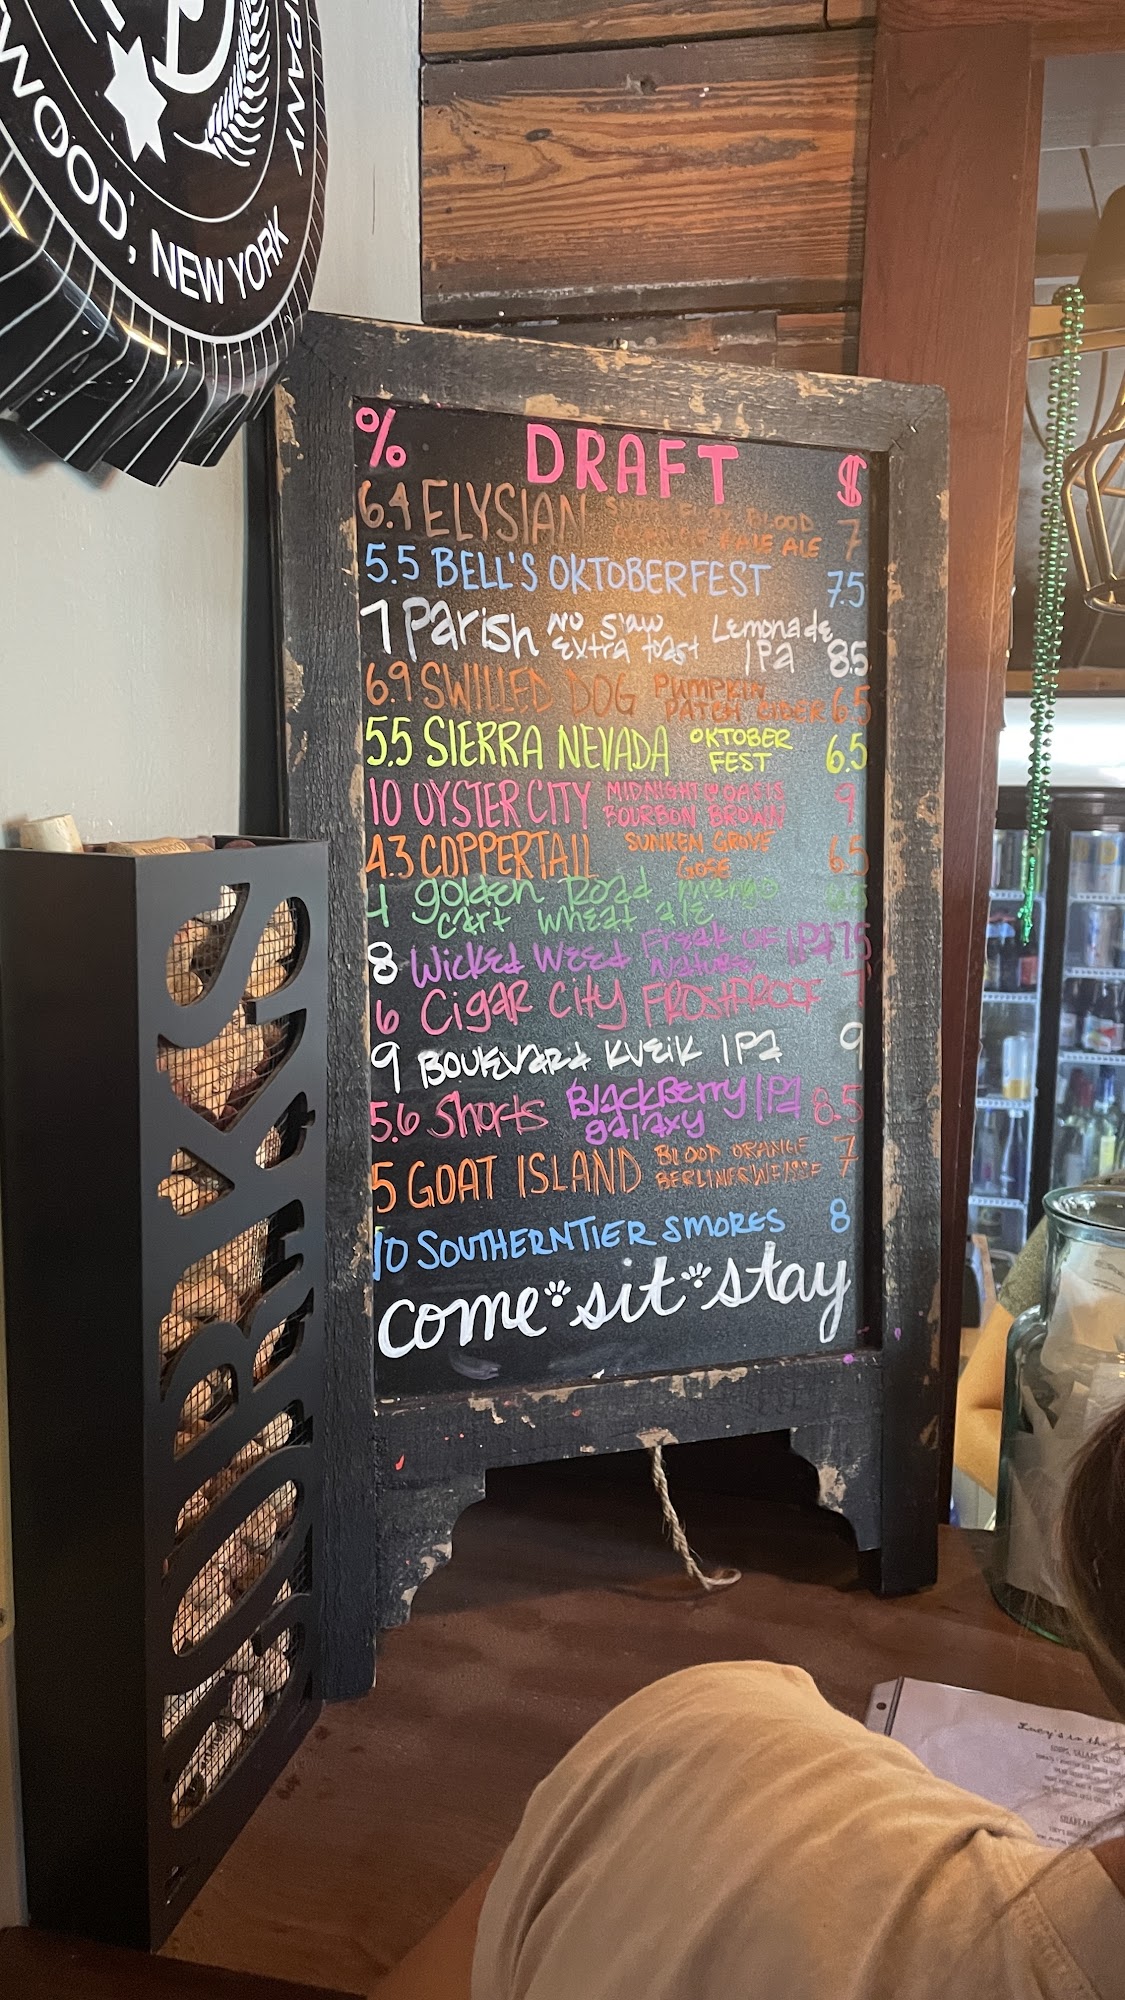 WOOD, NEW YORK
% DRAFT $
6.4 ELYSIAN BLOOD 7
PALE ALE
5.5 BELL'S OKTOBERFEST 7.5
7 Parish No Slaw Lemonade
Extra toast IPA 8.5
6.9 SWILLED DOG PUMPKIN
PATCH CIDER 6.5
5.5 SIERRA NEVADA OKTOBER
FEST 6.5
10 OYSTER CITY MIDNIGHT OASIS
BOURBON BROWN 9
4.3 COPPERTAIL SUNKEN GROVE
GOSE 6.5
4 golden Road mango
cart wheat ale
8 Wicked Weed Freak OF IPA 7.5
Nature
6 Cigar City FROSTPROOF 7
9 Boulevard Kveik IPA 9
5.6 Shorts BlackBerry IPA 8.5
galaxy
5 GOAT ISLAND BLOOD ORANGE 7
BERLINER WEISSE
10 SOUTHERN TIER SMORES 8
come sit stay
CORKS